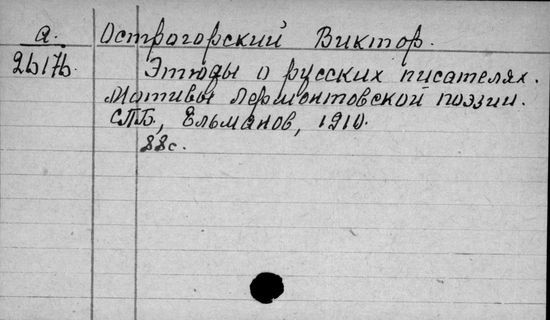 а. Острогорский Виктор.
2617б. Этюды о русских писателях.
Мотивы Лермонтовской поэзии.
СПБ, Ельманов, 1910.
88с.